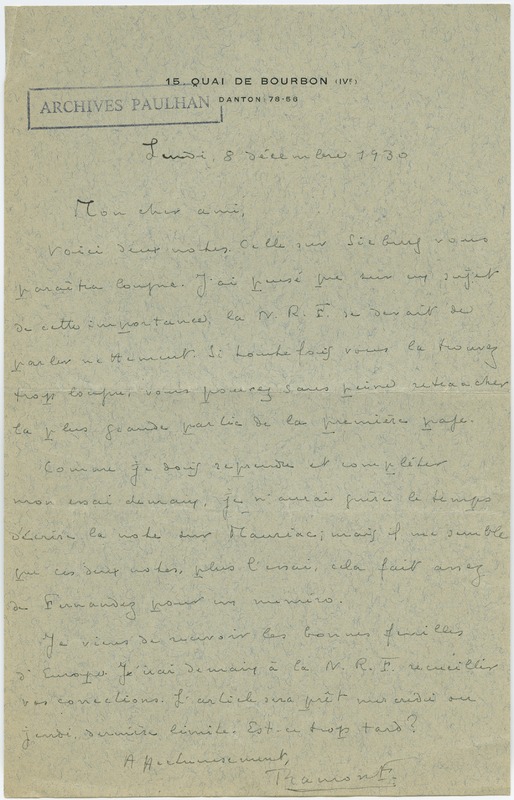 15, QUAI DE BOURBON (IVE)
DANTON 76-56
ARCHIVES PAULHAN
Lundi, 8 décembre 1930
Mon cher ami,
Voici deux notes. Celle sur Sieburg vous
paraîtra longue. J'ai pensé que sur un sujet
de cette importance, la N. R. F. se devait de
parler nettement. Si toutefois vous la trouvez
trop longue, vous pouvez sans peine retrancher
la plus grande partie de la première page.
Comme je dois reprendre et compléter
mon essai demain, je n'aurai guère le temps
d'écrire la note sur Mauriac; mais il me semble
que ces deux notes, plus l'essai, cela fait assez
de Fernandez pour un numéro.
Je viens de recevoir les bonnes feuilles
d'Europe. J'irai demain à la N. R. F. recueillir
vos corrections. L'article sera prêt mercredi ou
jeudi, dernière limite. Est-ce trop tard?
Affectueusement,
Ramon F.